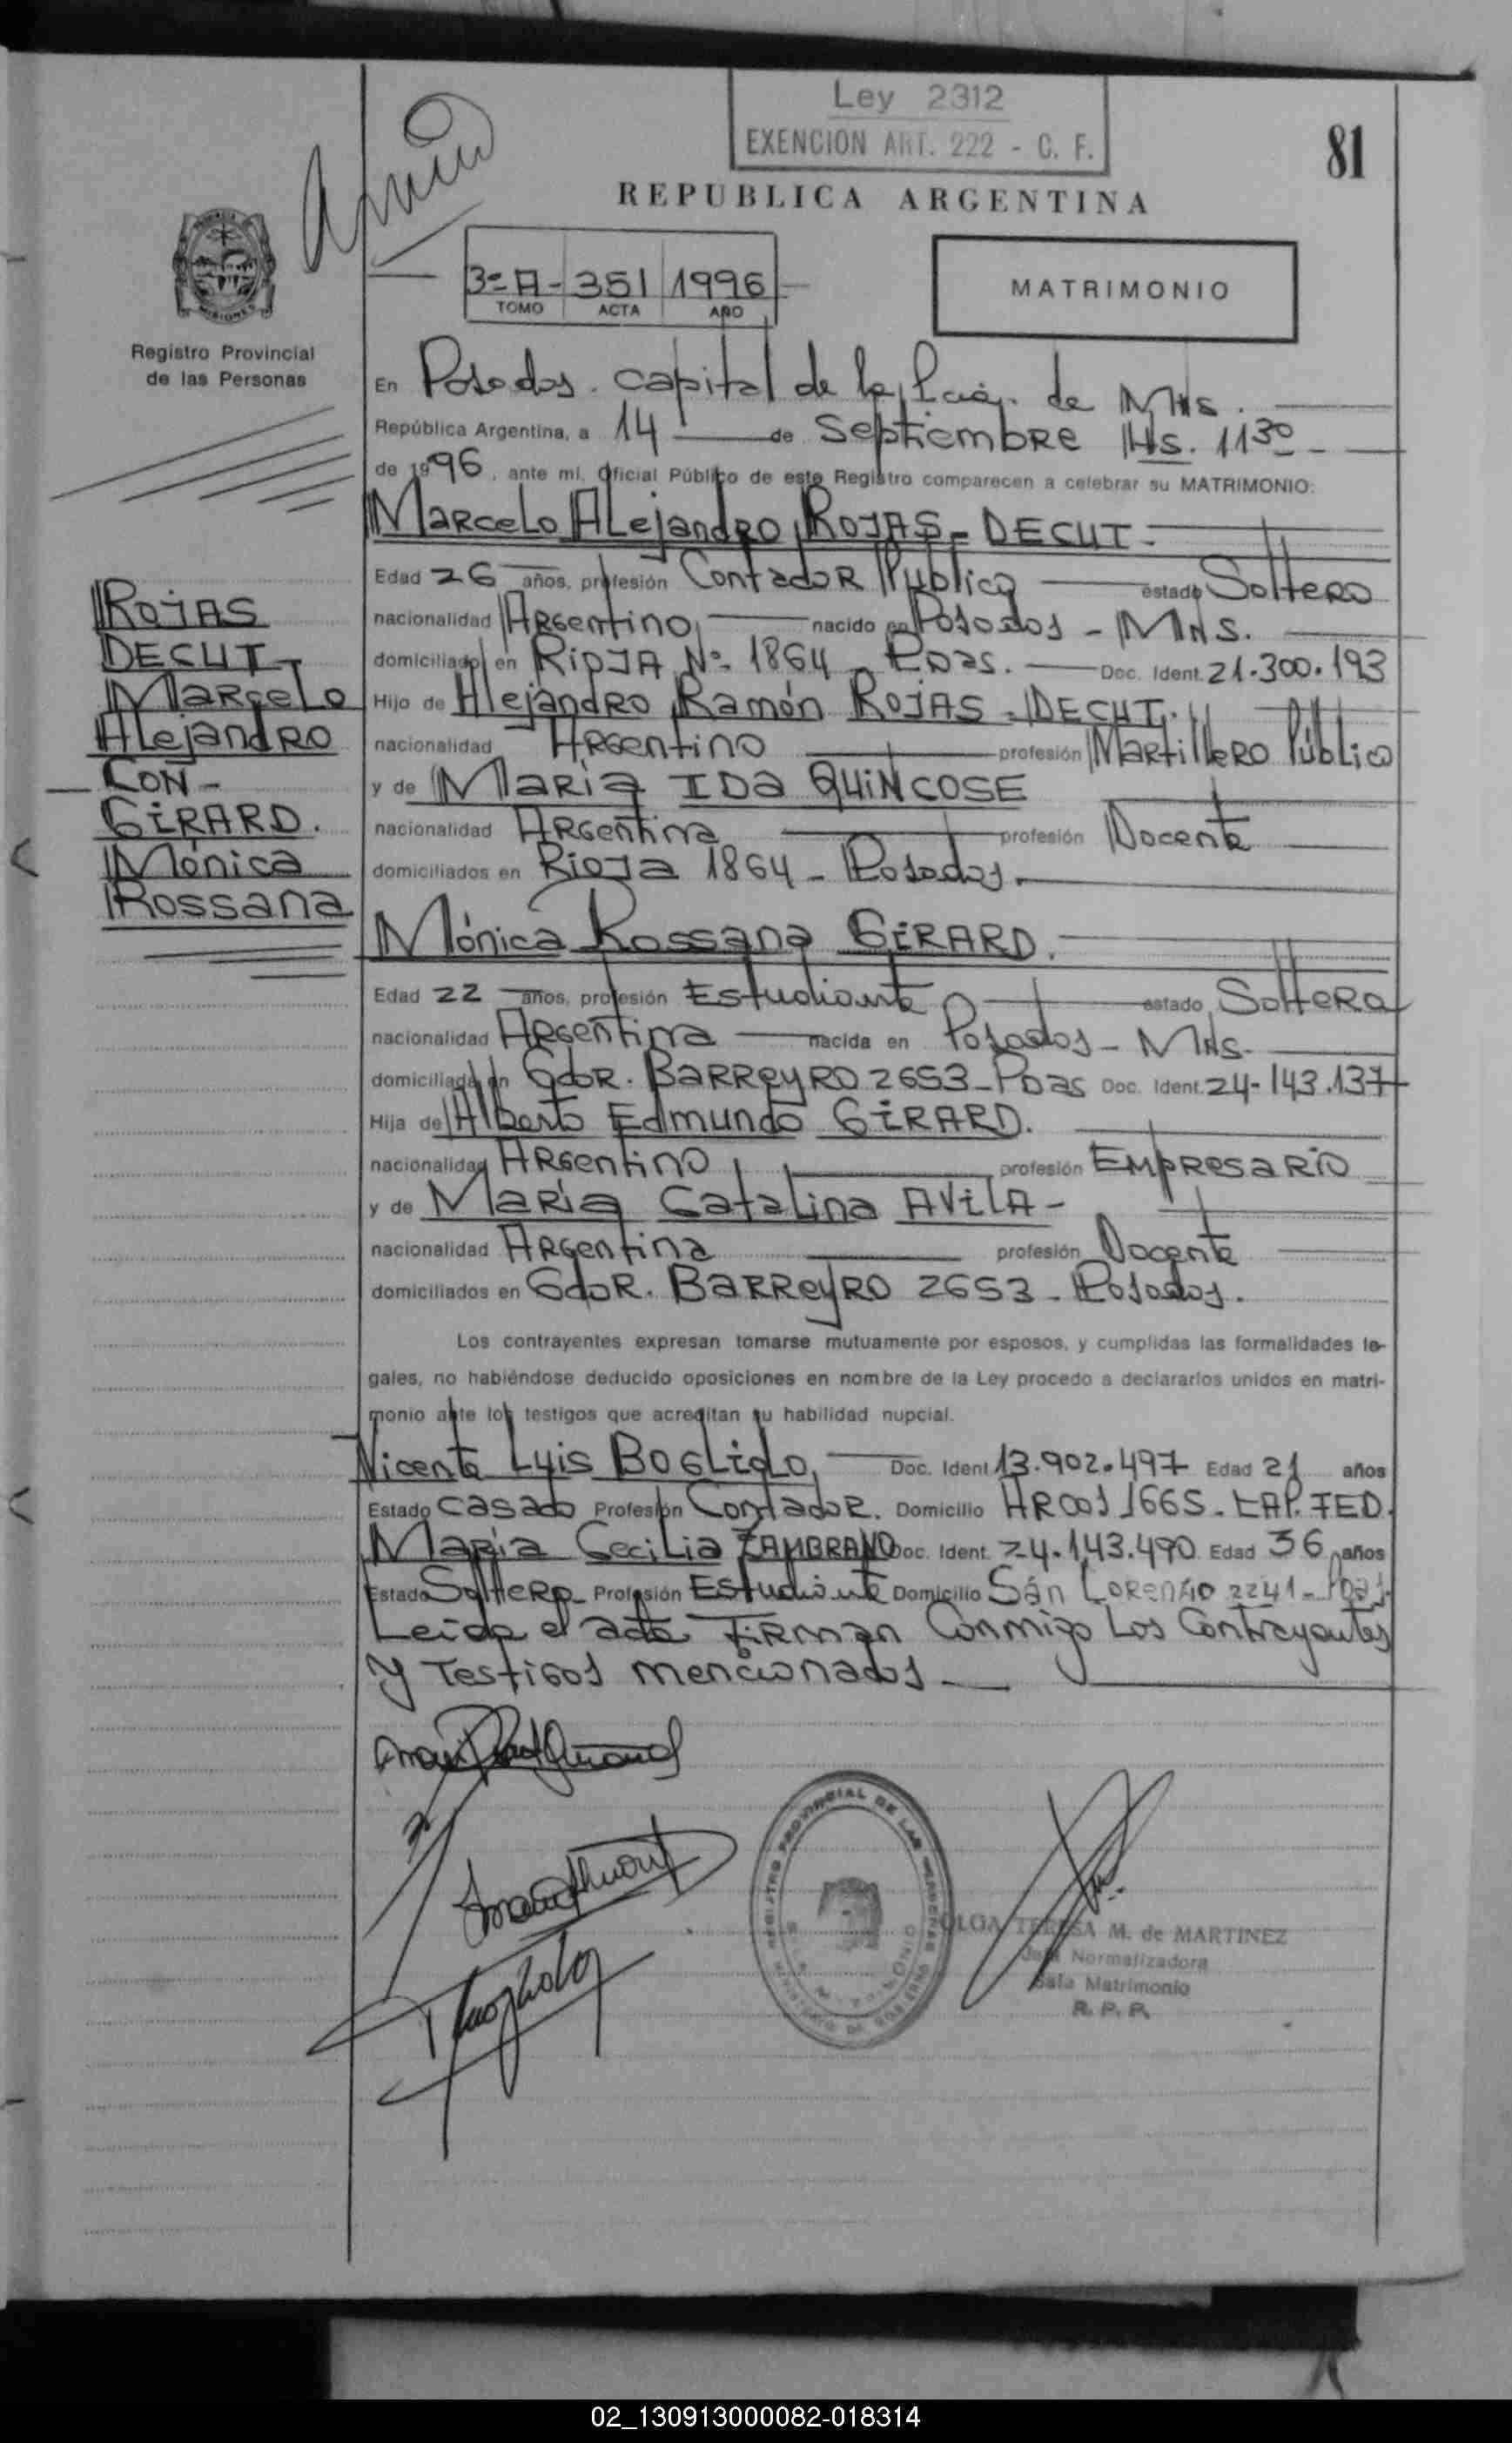 Ley 2312
EXENCION ART. 222 - C. F.
81
REPUBLICA ARGENTINA
3º A - 351 1996
TOMO ACTA AÑO
MATRIMONIO
MISIONES
Registro Provincial
de las Personas
En Posadas. capital de la Pcia. de Mns.
República Argentina, a 14 de Septiembre Hs. 11 30
de 1996, ante mi, Oficial Público de este Registro comparecen a celebrar su MATRIMONIO:
Marcelo Alejandro ROJAS - DECUT -
Edad 26 años, profesión Contador Publico estado Soltero
nacionalidad Argentino nacido en Posadas - Mns.
domiciliado en Rioja Nº 1864 - Pdas. Doc. Ident. 21.300.193
Hijo de Alejandro Ramón ROJAS - DECUT.
nacionalidad Argentino profesión Martillero Público
y de Maria IDA QUINCOSE
nacionalidad Argentina profesión Docente
domiciliados en Rioja 1864 - Posadas.
ROJAS
DECUT -
Marcelo
Alejandro
CON -
GIRARD.
Mónica
Rossana
Mónica Rossana GIRARD.
Edad 22 años, profesión Estudiante estado Soltera
nacionalidad Argentina nacida en Posadas - Mns.
domiciliada en Gdor. Barreyro 2653 - Pdas Doc. Ident. 24-143.137
Hija de Alberto Edmundo GIRARD.
nacionalidad Argentino profesión Empresario
y de Maria Catalina AVILA -
nacionalidad Argentina profesión Docente
domiciliados en Gdor. Barreyro 2653 - Posadas.
Los contrayentes expresan tomarse mutuamente por esposos, y cumplidas las formalidades le-
gales, no habiéndose deducido oposiciones en nombre de la Ley procedo a declararlos unidos en matri-
monio ante los testigos que acreditan su habilidad nupcial.
Vicente Luis BOGLIOLO, Doc. Ident. 13.902.497 Edad 21 años
Estado Casado Profesión Contador. Domicilio 1665 - CAP. FED.
Maria Cecilia ZAMBRANO Doc. Ident. 24.143.490 Edad 36 años
Estado Soltera Profesión Estudiante Domicilio San Lorenzo 2241 - Pdas.
Leida el acta firman Conmigo Los Contrayentes
y Testigos mencionados -
REGISTRO PROVINCIAL DE LAS PERSONAS
MINISTERIO DE GOBIERNO
OLGA TERESA M. de MARTINEZ
Jefa Normatizadora
Sala Matrimonio
R. P. P.
02_130913000082-018314